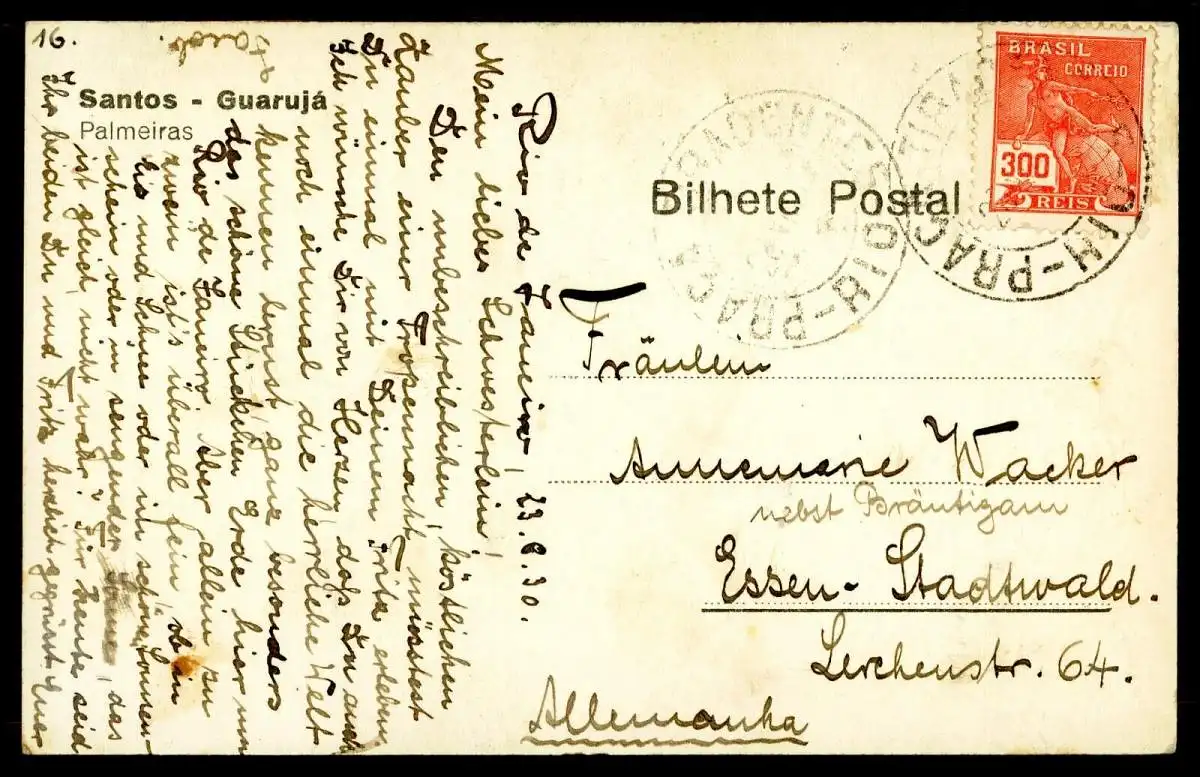 16.
Santos - Guarujá
Palmeiras
Rio de Janeiro, 23.6.30.
Mein liebes Schwesterlein!
Den unbeschreiblichen, köstlichen
Zauber einer Tropennacht müsstest
Du einmal mit Deinem Fritz erleben
Ich wünsche Dir von Herzen, dass Du auch
noch einmal die herrliche Welt
kennen lernst, ganz besonders
das schöne Stückchen Erde hier um
Rio de Janeiro. Aber allein zu
zwein ist's überall fein, ob in
Eis und Schnee oder im schönen Sonnen-
schein oder in sengender das
ist gleich, nicht wahr? Für heute seid
Ihr beiden Du und Fritz herzlich gegrüsst Euer
BRASIL
CORREIO
300
REIS
Bilhete Postal
PRAÇA TIRADENTES
RIO
Fräulein
Annemarie Wacker
nebst Bräutigam
Essen-Stadtwald.
Lerchenstr. 64.
Allemanha